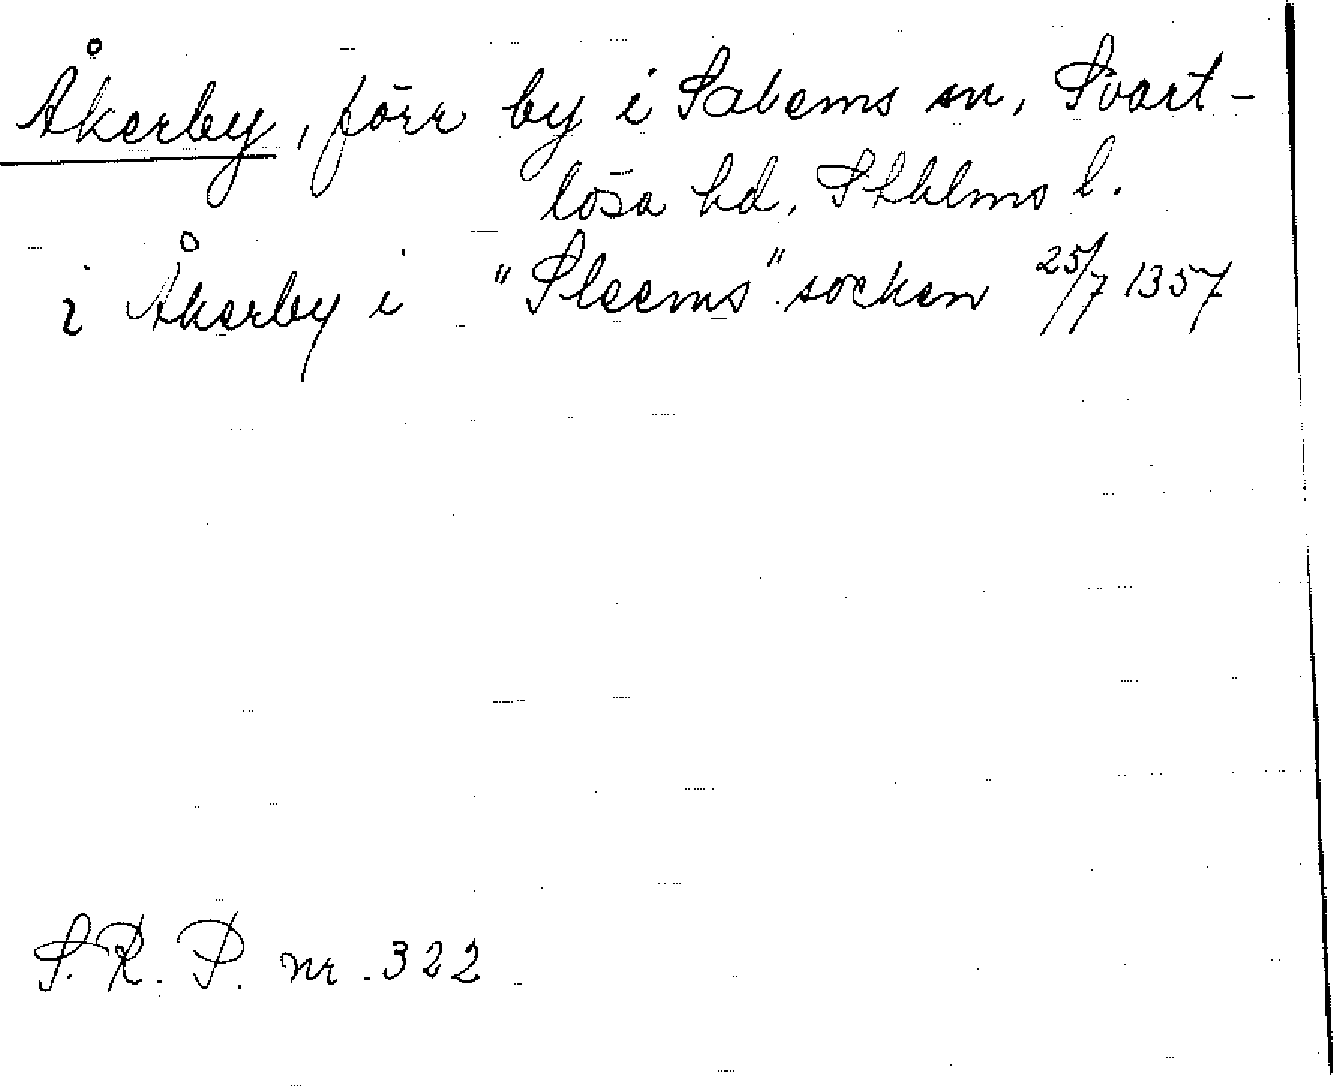 Åkerby, förr by i Salems sn, Svart-
lösa hd, Sthlms l.
i Åkerby i "Sleems" socken 25/7 1357
S.R.P. nr. 322